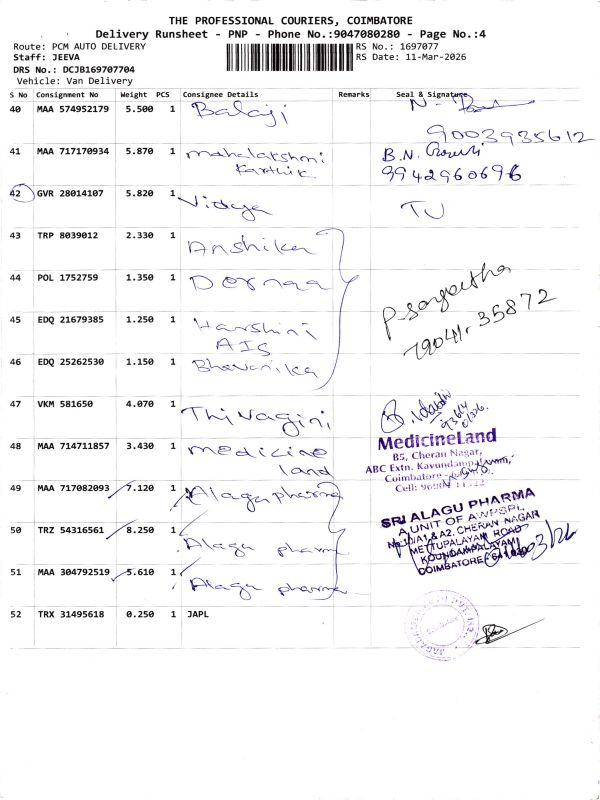 THE PROFESSIONAL COURIERS, COIMBATORE
Delivery Runsheet - PNP - Phone No.:9047080280 - Page No.:4
Route: PCM AUTO DELIVERY
Staff: JEEVA
DRS No.: DCJB169707704
Vehicle: Van Delivery
RS No.: 1697077
RS Date: 11-Mar-2026
S No Consignment No Weight PCS Consignee Details Remarks Seal & Signature
40 MAA 574952179 5.500 1 Balaji
9003935612
41 MAA 717170934 5.870 1 mahalakshmi Karthik B.N.
9942960696
42 GVR 28014107 5.820 1 Vidhya TU
43 TRP 8039012 2.330 1 Anshika
44 POL 1752759 1.350 1
P-Sangeetha
79041-35872
45 EDQ 21679385 1.250 1 Harshini AIS
46 EDQ 25262530 1.150 1 Bhavanika
47 VKM 581650 4.070 1 Thivagini
48 MAA 714711857 3.430 1 medicine land
MedicineLand
B5, Cheran Nagar,
ABC Extn. Kavundampalayam,
Coimbatore
Cell:
49 MAA 717082093 7.120 1 Alagu pharma
50 TRZ 54316561 8.250 1 Alagu pharma
51 MAA 304792519 5.610 1 Alagu pharma
SRI ALAGU PHARMA
A UNIT OF AWPSPL
& A2, CHERAN NAGAR
METTUPALAYAM ROAD
KOUNDAMPALAYAM
COIMBATORE
52 TRX 31495618 0.250 1 JAPL